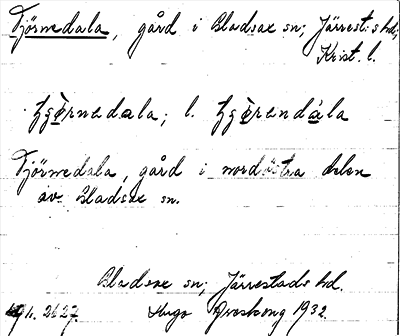 Tjörnedala, gård i Bladsax sn; Järrest:s hd;
Krist. l.
tjö̀rnedala; l. tjö̀rendála
Tjörnedala, gård i nordöstra delen
av Bladsax sn.
Bladsax sn; Järrestads hd.
Hugo Areskoug 1932.